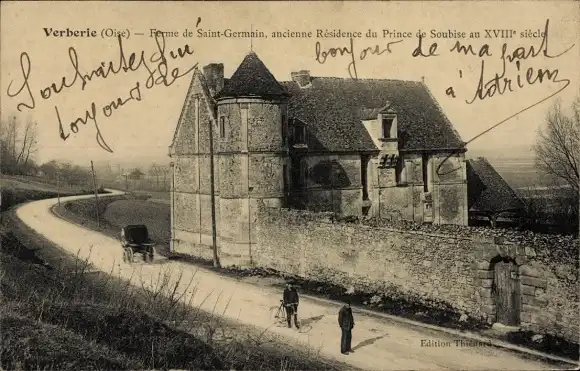 Verberie (Oise) — Ferme de Saint-Germain, ancienne Résidence du Prince de Soubise au XVIIIe siècle
toujours de
bonjour de ma part
à Adrien
Edition Thiénard